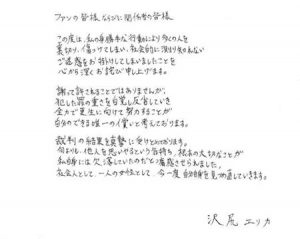 ファンの皆様 ならびに関係者の皆様
この度は、私の身勝手な行動により多くの人を
裏切り、傷つけてしまい、社会的に計り知れない
ご迷惑をお掛けしてしまいましたことを
心から深くお詫び申し上げます。
謝って許されることではありませんが、
犯した罪の重さを自覚し反省していき
全力で更生に向けて努力することが
自分のできる唯一の償いと考えております。
裁判の結果を真摯に受けとめております。
何よりも、他人を思いやるという気持ち、根本の大切なことが
私自身には欠落していたのだと痛感させられました。
社会人として、一人の女性として、今一度自分自身を見つめ直していきます。
沢尻エリカ